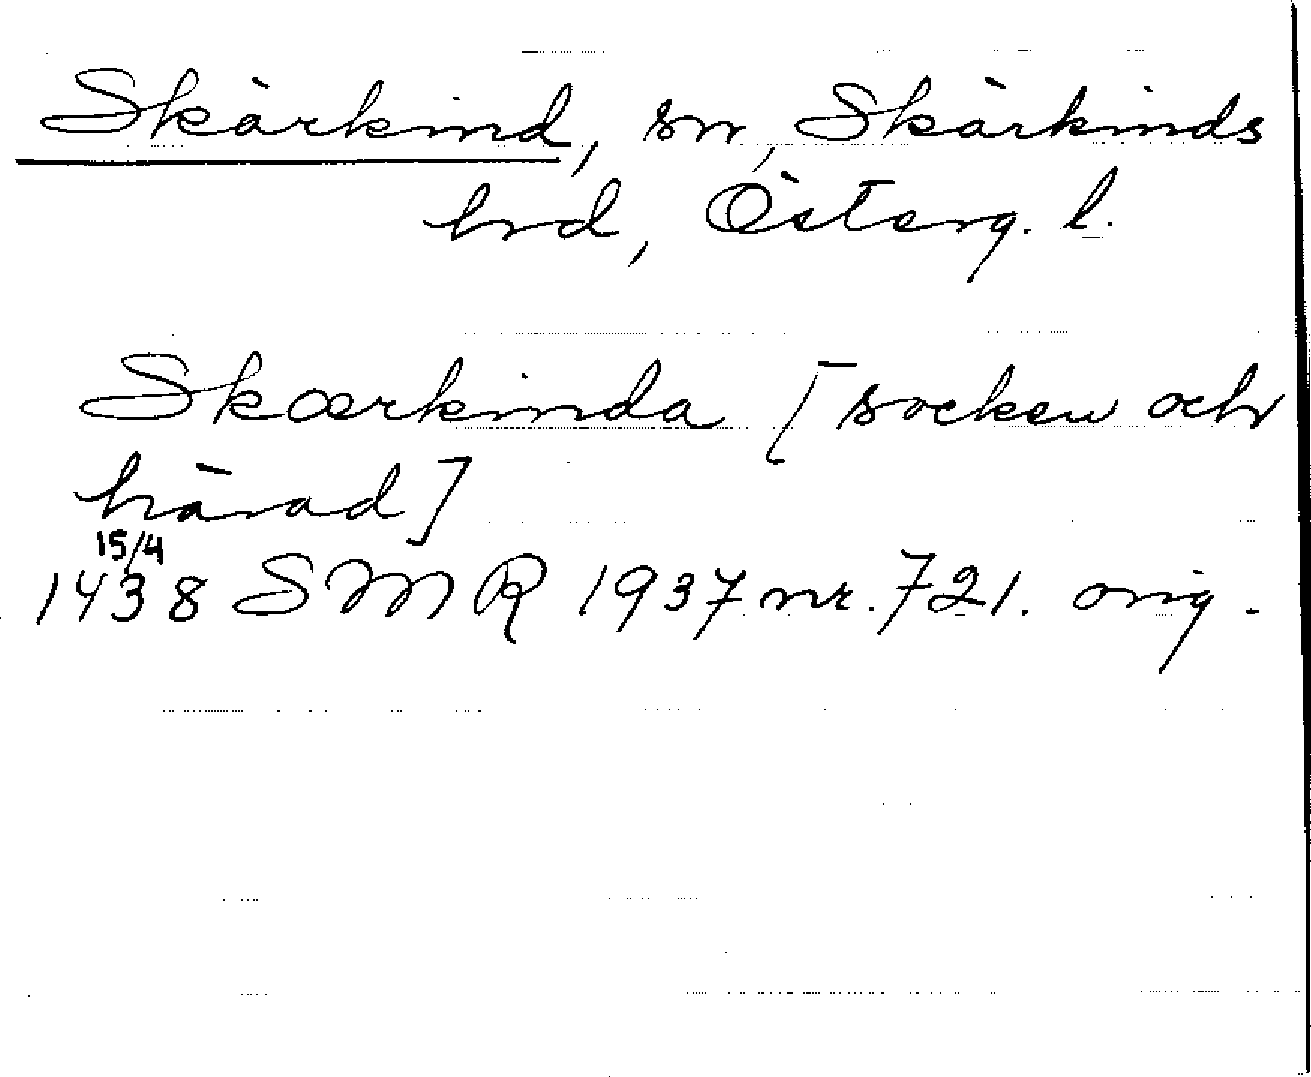 Skärkind, sn, Skärkinds
hrd, Österg. l.
Skærkinda [socken och
härad]
15/4
1438 SMR 1937 nr. 721. orig.